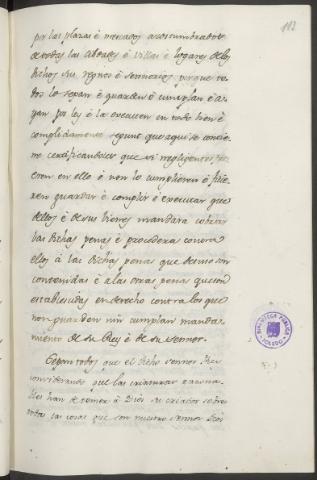 112
por las plazas è mercados acostumbrados
de todas las cibdades è villas è logares de los
dichos sus regnos è sennorios, porque to-
dos lo sepan è guarden è cumplan è a-
yan por ley è la executen en todo bien è
complidamente segunt que aqui se contie-
ne certificandoles que si negligentes, fue-
ren en ello è non lo cumplieren è ficie-
ren guardar è complir è executar que
dellos è de sus bienes mandara cobrar
las dichas penas è procedera contra
ellos à las dichas penas que de uso son
contenidas è a las otras penas que son
establecidas en derecho contra los que
non guardan nin cumplan manda-
miento de su Rey è de su sennor.
Sepan todos que el dicho sennor Rey
considerando que las criaturas raciona-
les han de temer à Dios su criador sobre
todas las cosas que son nuestro sennor Dios
BIBLIOTECA PUBLICA
TOLEDO